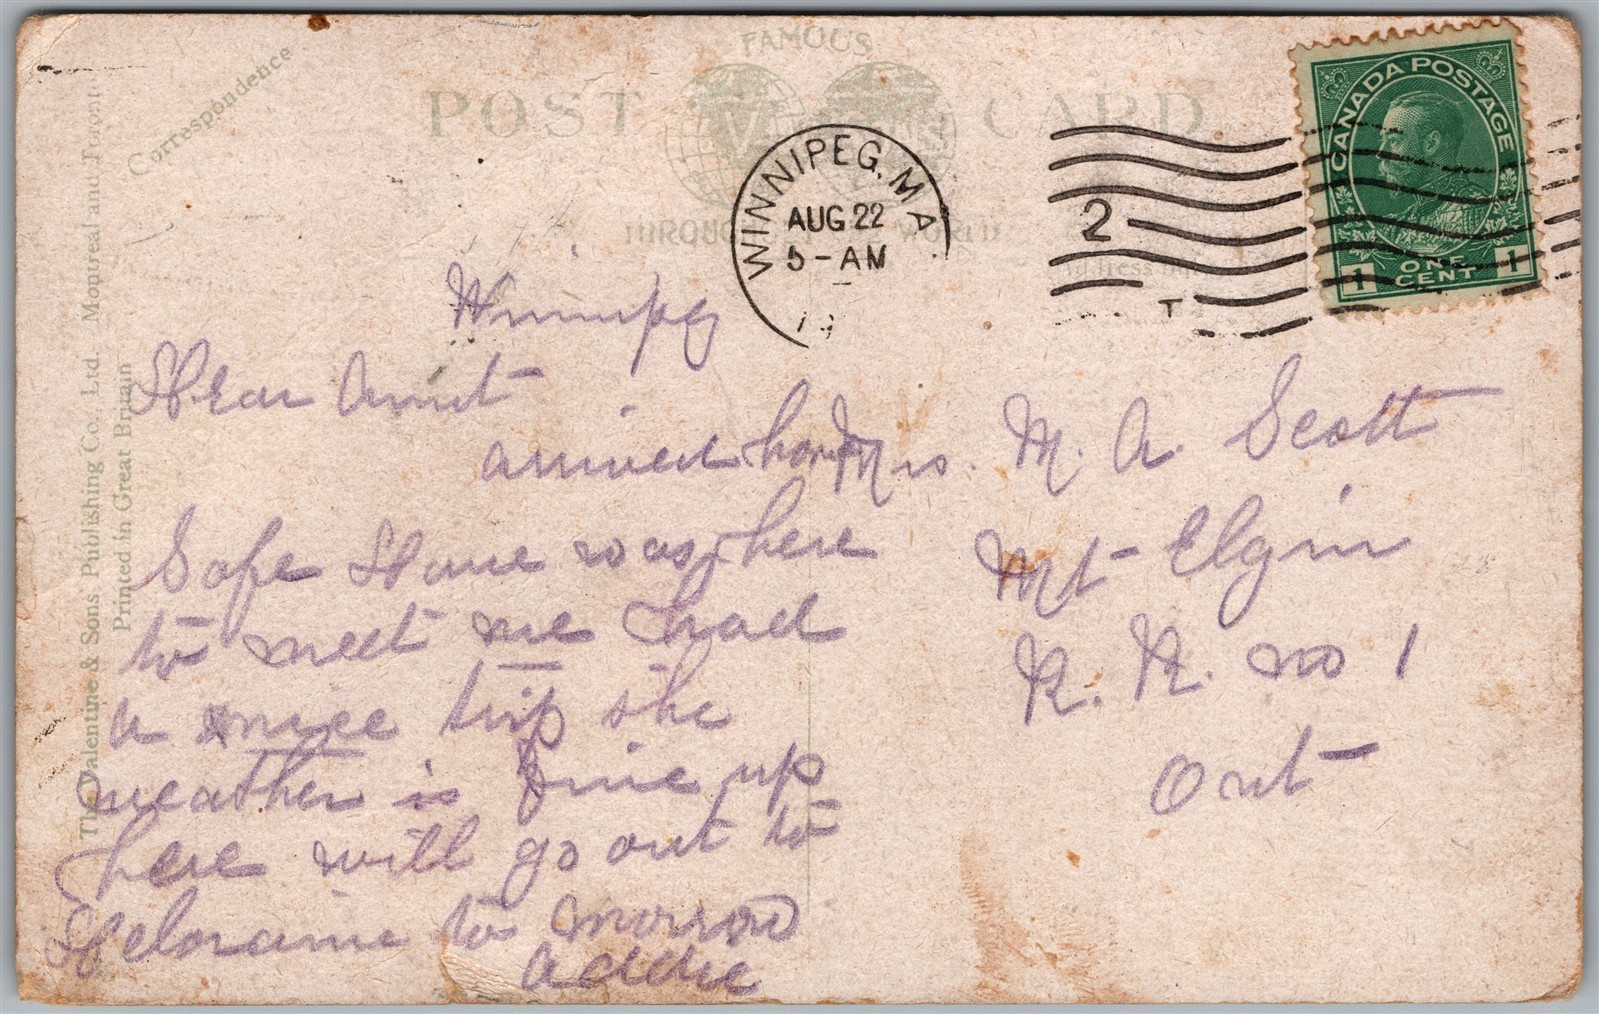 FAMOUS
POST CARD
THROUGHOUT THE WORLD
Correspondence
The Valentine & Sons' Publishing Co., Ltd. Montreal and Toronto
Printed in Great Britain
WINNIPEG. MA
AUG 22
5 - AM
2
CANADA POSTAGE
1 ONE CENT 1
Winnipeg
Dear Aunt
arrived home
Safe was here
to meet me had
a nice trip the
weather is fine up
here will go out to
Deloraine to morrow
Addie
Mrs. M. A. Scott
Mt Elgin
R. R. no 1
Ont